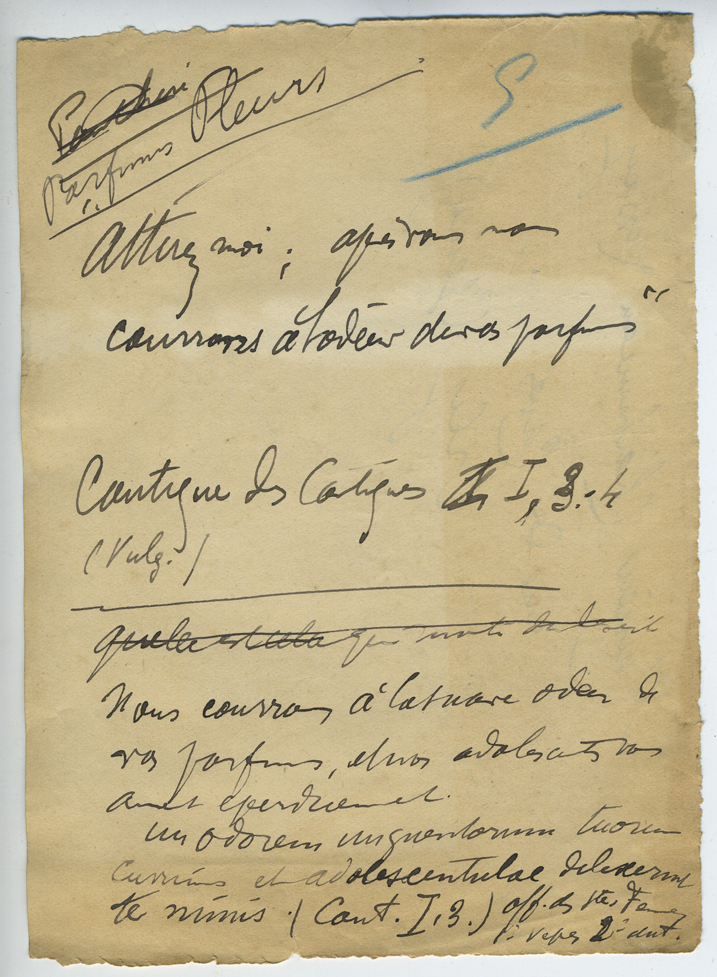 Fleurs
Parfums
5
Attirez moi ; après vous nous
courrons à l'odeur de vos parfums "
Cantique des Cantiques I, 3.-4
(Vulg.)
quelle est celle qui monte du désert
Nous courrons à la suave odeur de
vos parfums, et nos adolescentes vous
aiment éperduement.
in odorem unguentorum tuorum
currimus et adolescentulae dilexerunt
te nimis. (Cant. I, 3.) off. des
vêpres 2e ant.